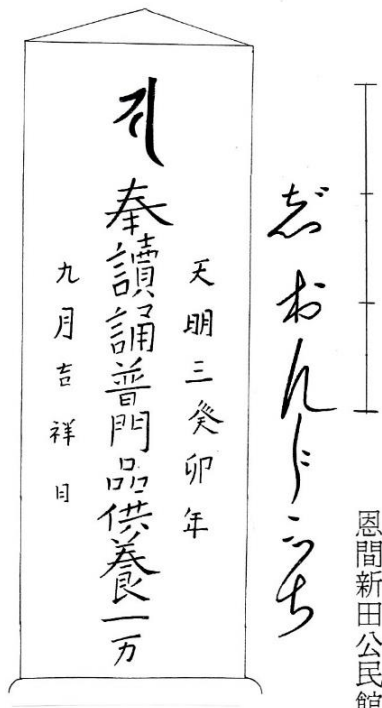 恩間新田公民館
天明三癸卯年
奉讀誦普門品供養一万
九月吉祥日